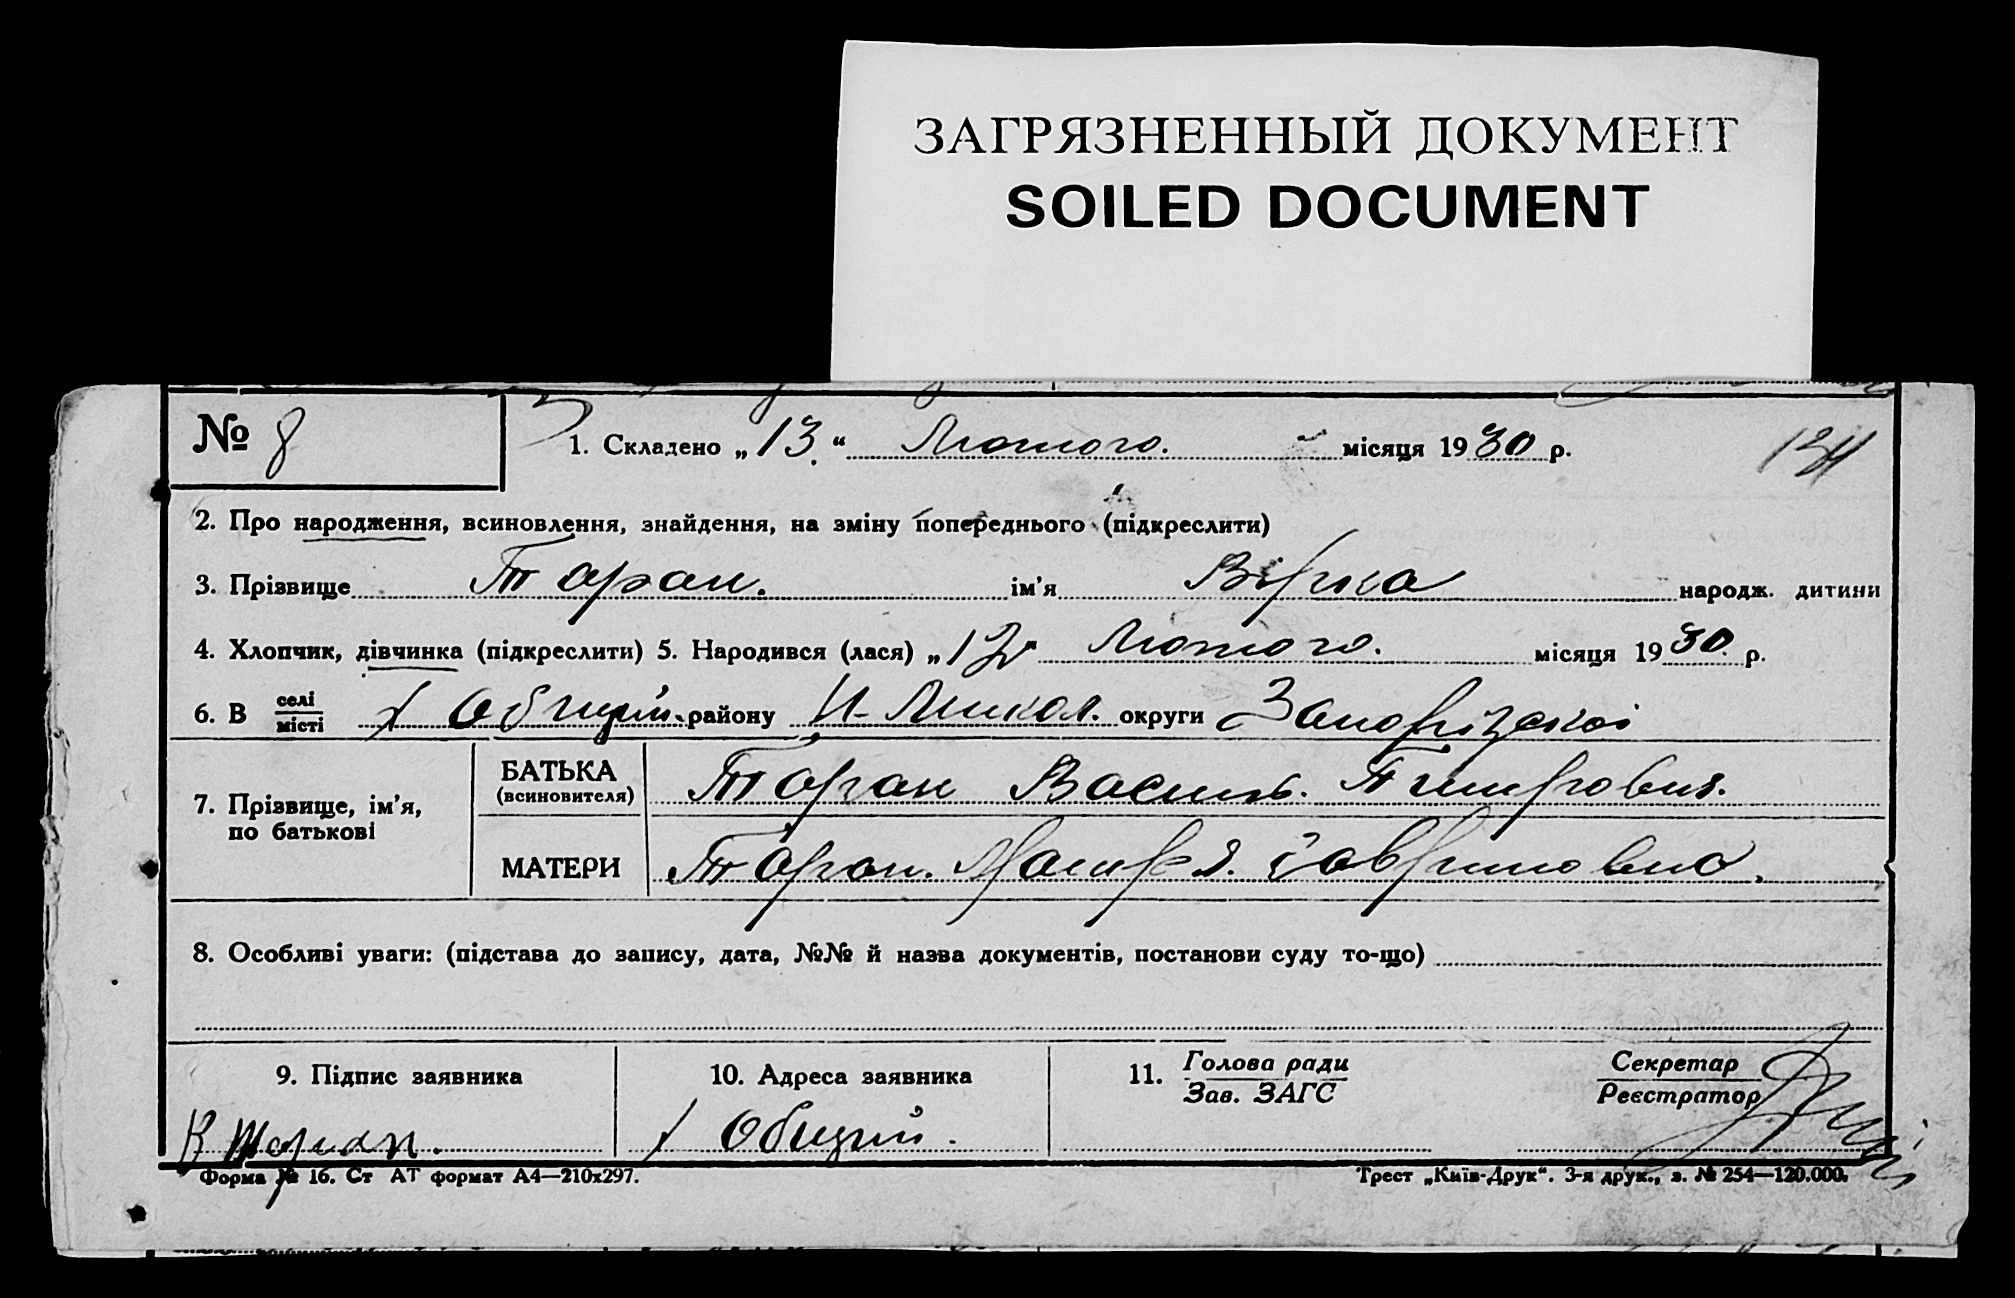 ЗАГРЯЗНЕННЫЙ ДОКУМЕНТ
SOILED DOCUMENT
№ 8
1. Складено „13“ Лютого. місяця 1930 р.
134
2. Про народження, всиновлення, знайдення, на зміну попереднього (підкреслити)
3. Прізвище Таран. ім’я Вірка народж. дитини
4. Хлопчик, дівчинка (підкреслити) 5. Народився (лася) „12“ Лютого. місяця 1930 р.
6. В селі/місті х Общий району Н-Микол. округи Запорізької
7. Прізвище, ім’я, по батькові
БАТЬКА (всиновителя) Таран Василь.
МАТЕРИ Таран. Гавриловна.
8. Особливі уваги: (підстава до запису, дата, №№ й назва документів, постанови суду то-що)
9. Підпис заявника
10. Адреса заявника
11. Голова ради/Зав. ЗАГС
Секретар/Реєстратор
В Таран.
х Общий.
Форма № 16. Ст АТ формат А4—210х297.
Трест „Київ-Друк“. 3-я друк., з. № 254—120.000.